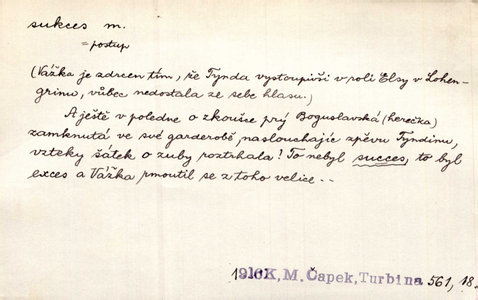 sukces m.
= postup
(Vážka je zdrcen tím, že Tynda vystoupivši v roli Elsy v Lohen-
grinu, vůbec nedostala ze sebe hlasu.)
A ještě v poledne o zkoušce prý Boguslavská (herečka)
zamknutá ve své garderobě, naslouchajíc zpěvu Tyndinu,
vzteky šátek o zuby roztrhala! To nebyl succes, to byl
exces a Vážka rmoutil se z toho velice --
K. M. Čapek, Turbina 561, 18.